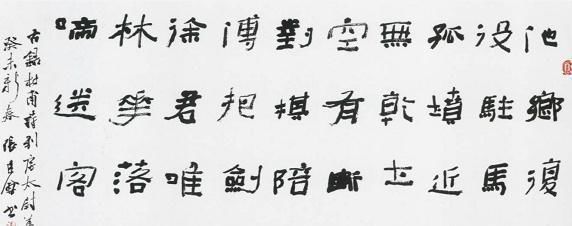 他鄉復
役駐馬
孤墳近
無乾土
空有斷
對棋陪
傅把劍
徐君唯
林華落
啼送客
右錄杜甫詩別房太尉墓
癸未新春 張書